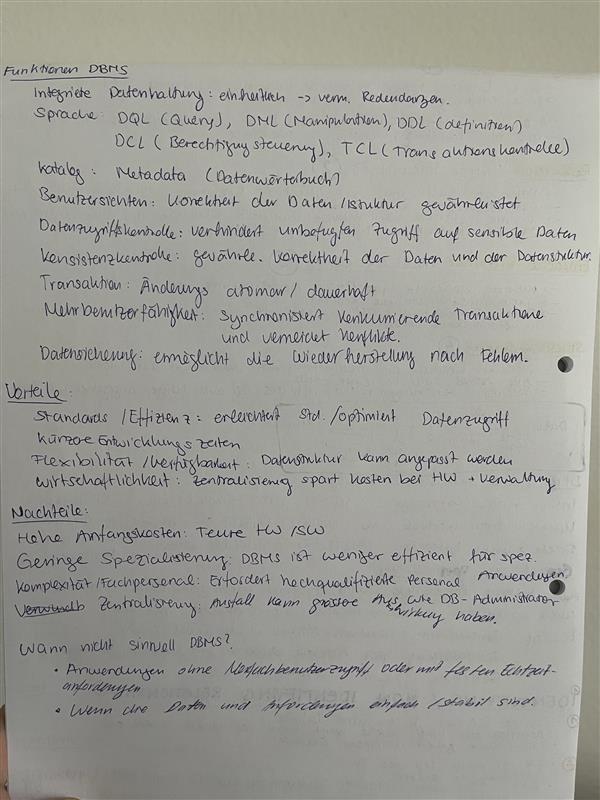 Funktionen DBMS
Integriete Datenhaltung: einheitlich -> verm. Redundanzen.
Sprache: DQL (Query), DML (Manipulation), DDL (definition)
DCL (Berechtigung steuerung), TCL (Transaktionskontrolle)
Katalog: Metadata (Datenwörterbuch)
Benutzersichten: Korrektheit der Daten/struktur gewährleistet
Datenzugriffskontrolle: verhindert unbefugten Zugriff auf sensible Daten
Konsistenzkontrolle: gewährle. Korrektheit der Daten und der Datenstruktur.
Transaktion: Änderungs atomar / dauerhaft
Mehrbenutzerfähigkeit: Synchronisiert konkurrierende Transaktione
und vermeidet Konflikte.
Datensicherung: ermöglicht die Wiederherstellung nach Fehlern.
Vorteile:
Standards / Effizienz: erleichtert Std. /optimiert Datenzugriff
Kürzere Entwicklungszeiten
Flexibilität / Verfügbarkeit: Datenstruktur kann angepasst werden
Wirtschaftlichkeit: Zentralisierung spart kosten bei HW + Verwaltung
Nachteile:
Hohe Anfangskosten: Teure HW / SW
Geringe Spezialisierung: DBMS ist weniger effizient für spez.
Anwendungen.
Komplexität / Fachpersonal: Erfordert hochqualifizierte Personal
wie DB-Administrator
Zentralisierung: Ausfall kann grössere Auswirkung haben.
Wann nicht sinnvoll DBMS?
• Anwendungen ohne Mehrfachbenutzerzugriff oder mit festen Echtzeit-
anforderungen
• Wenn die Daten und Anforderungen einfach / stabil sind.